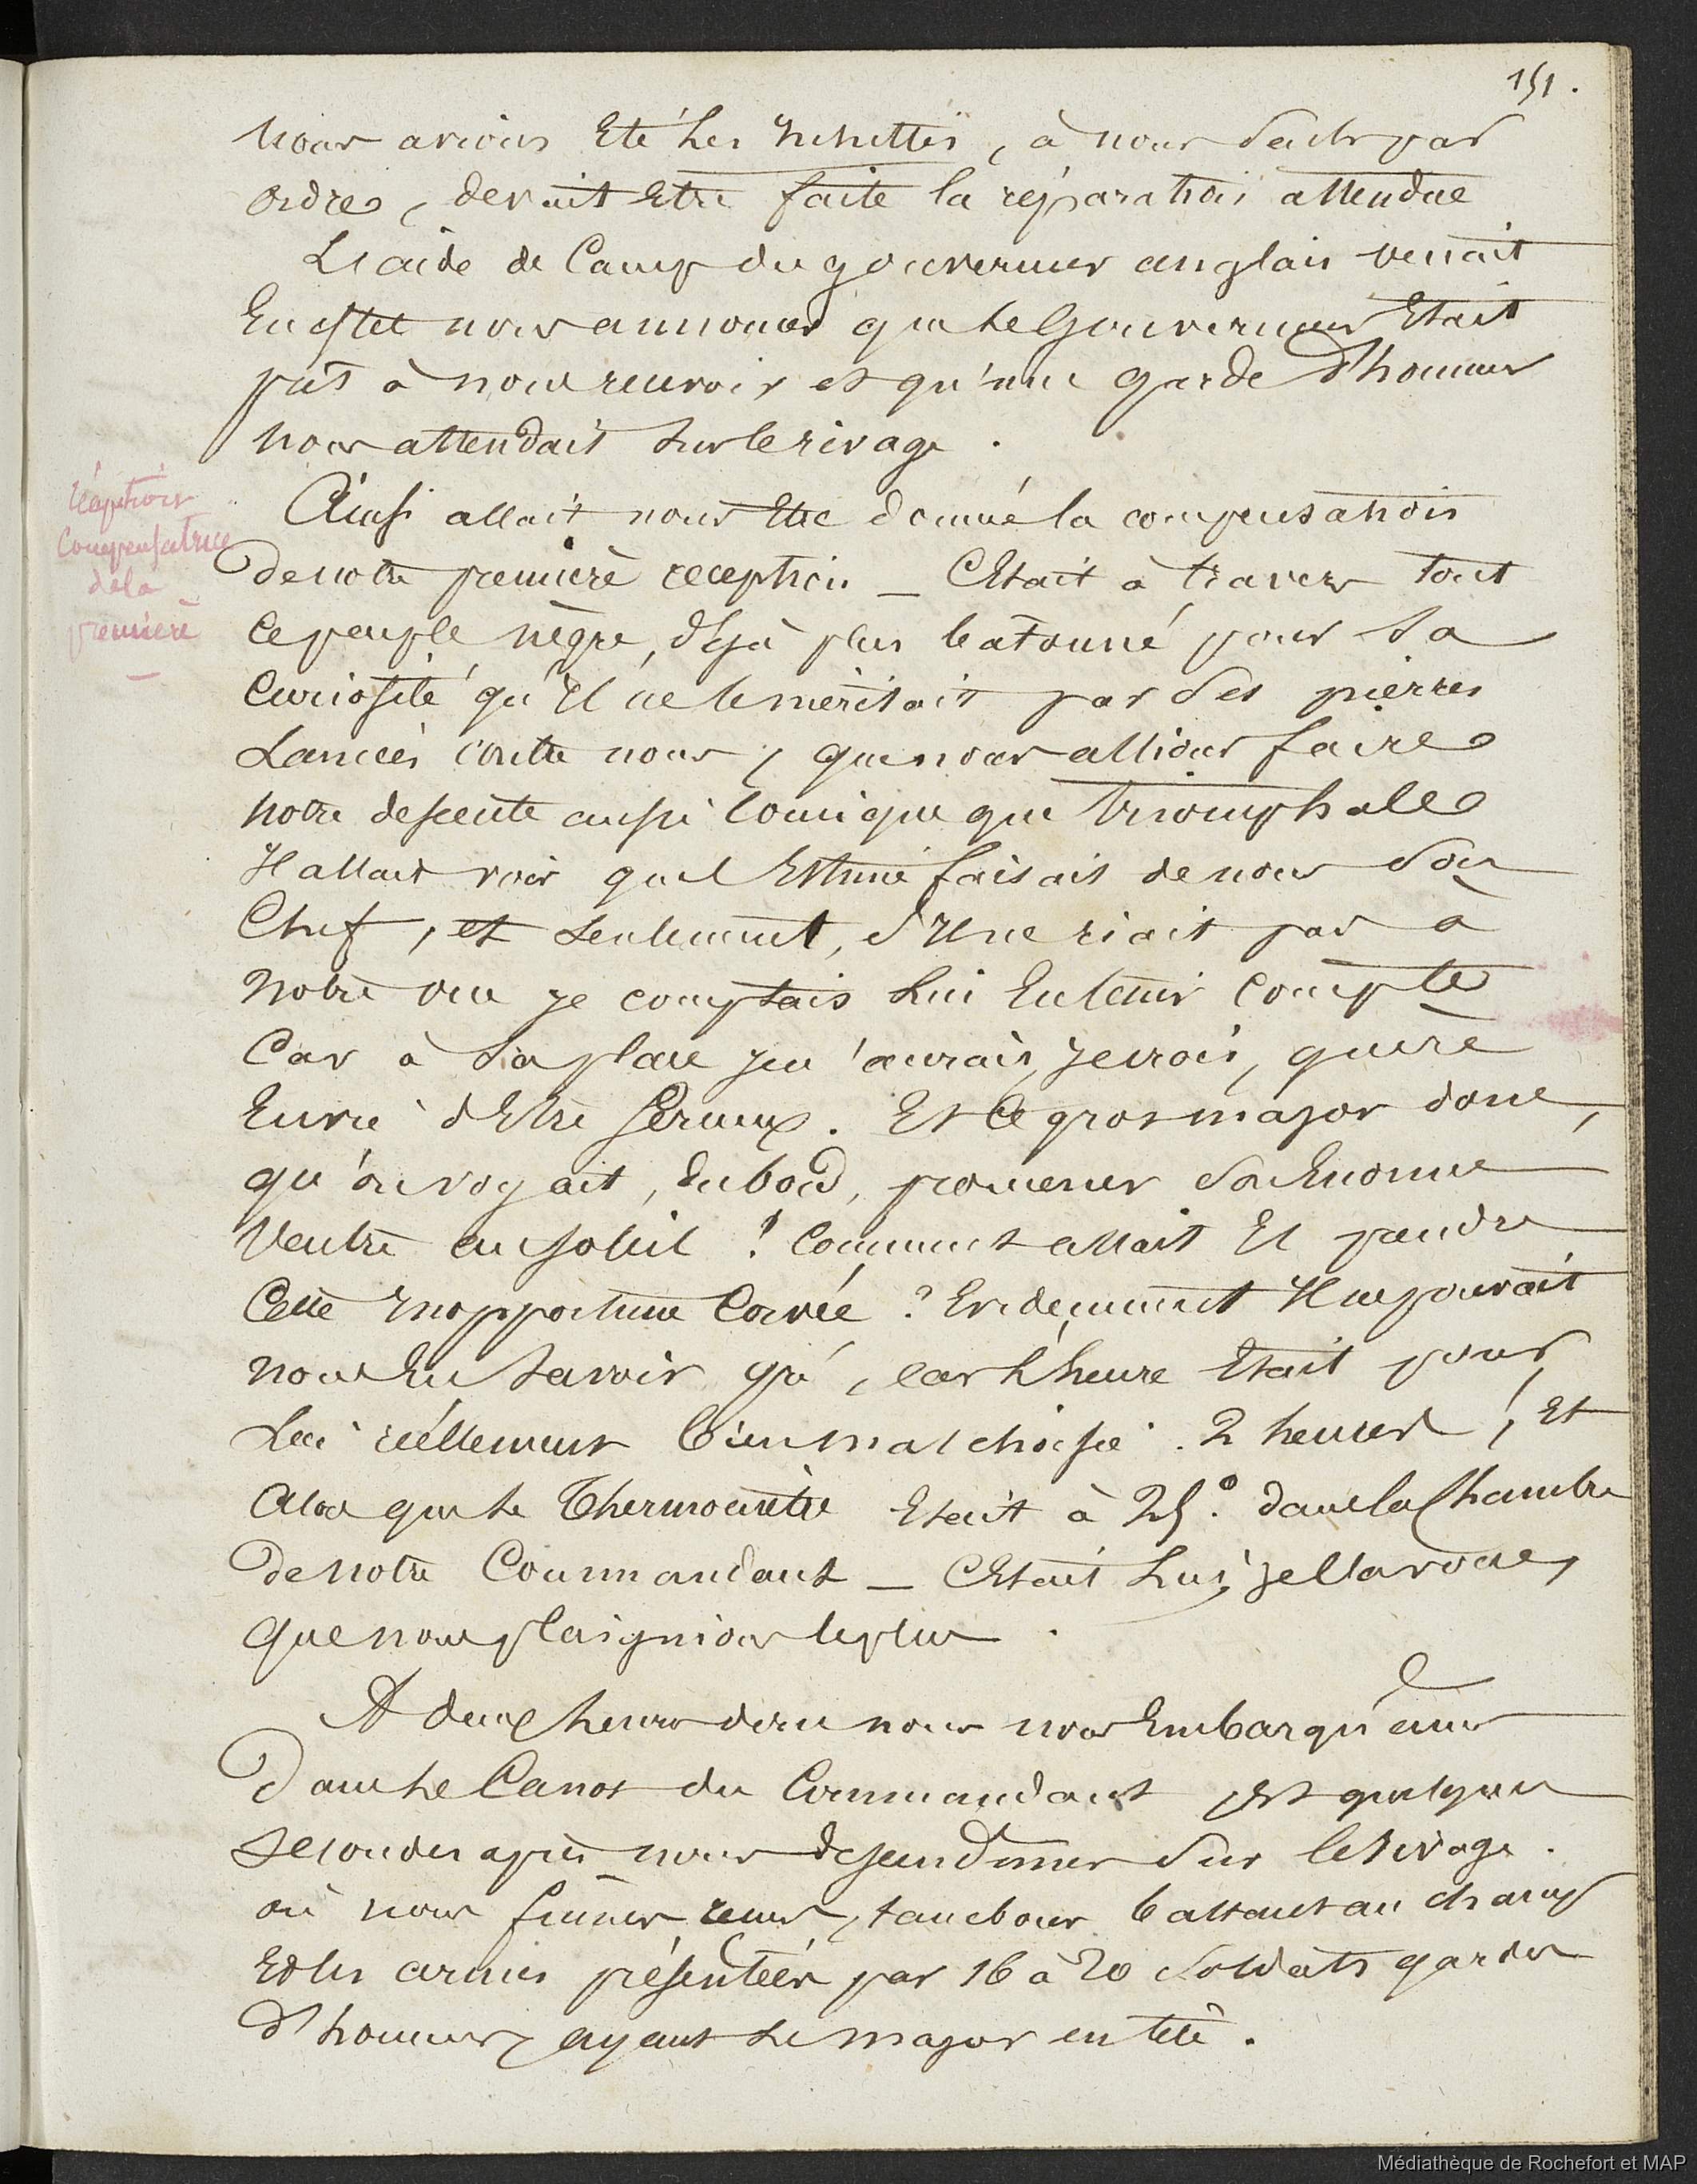 151.
nous avions été les        , à nous seuls par
ordre, devait Etre faite la réparation attendue
L'aide de Camp du gouverneur anglais venait
En effet nous annoncer que le Gouverneur Etait
prêt à nous recevoir et qu'une garde d'honneur
nous attendait sur le rivage.
Réception
Compensatrice
de la
première
Ainsi allait nous Etre donné la compensation
de notre première réception _ C'Etait à travers tout
ce peuple nègre, déjà plus batonné pour sa
Curiosité qu'Il ne le méritait par des pierres
Lancées contre nous, que nous allions faire
notre descente aussi comique que triomphale
Il allait voir quel Estime faisait de nous son
Chef, et seulement, s'Il ne riait pas à
notre vue je comptais lui En tenir compte
Car à sa place je n'aurais, je crois, guère
Envie d'Etre sérieux. Et ce gros major donc,
qu'on voyait, du bord, promener son Enorme
Ventre au soleil ! Comment allait Il prendre
Cette Inopportune Corvée ? Evidemment Il ne pouvait
nous En savoir gré, car l'heure Etait pour
Lui réellement bien mal choisie. 2 heures ! Et
alors que le Thermomètre Etait à 25°. dans la Chambre
de notre Commandant _ C'Etait lui, je l'avoue,
que nous plaignions le plus.
A deux heures donc nous nous Embarquâmes
dans le Canot du Commandant et quelques
secondes après nous descendîmes sur le rivage.
où nous fûmes reçus, tambour battant au champ
Et les armes présentées par 16 à 20 soldats gardes
d'honneur, ayant le major en tête.
Médiathèque de Rochefort et MAP